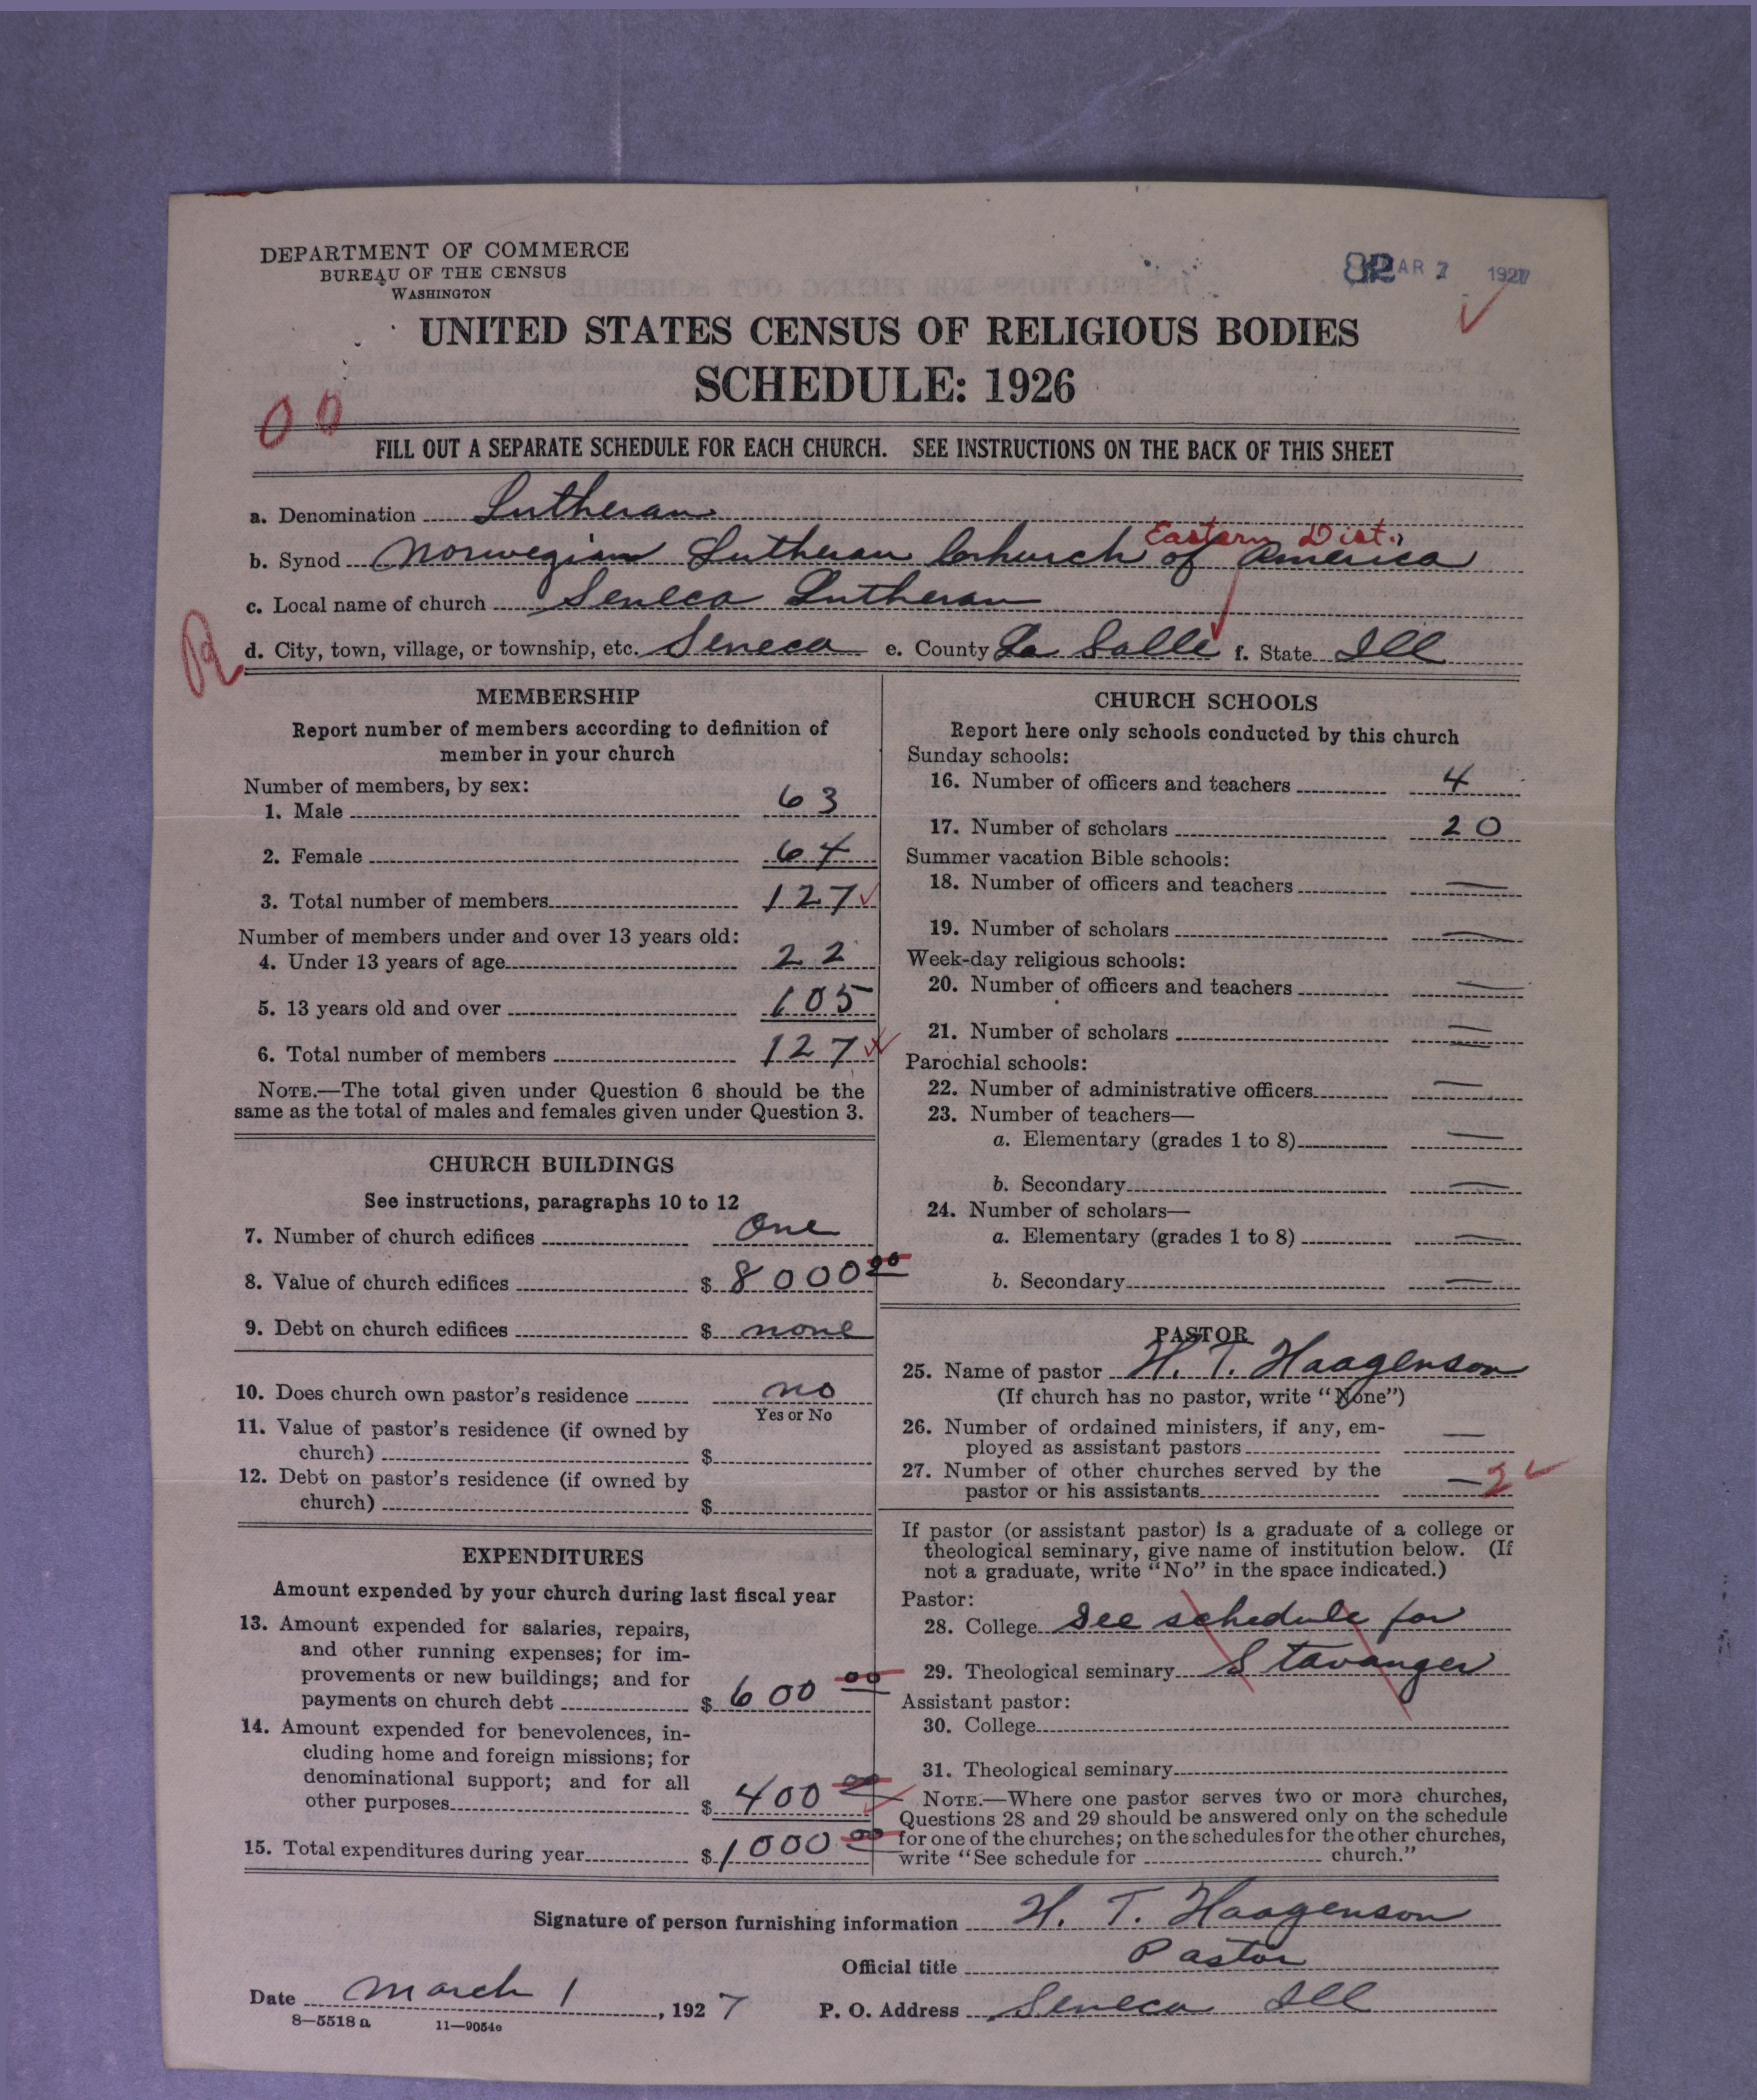 DEPARTMENT OF COMMERCE
BUREAU OF THE CENSUS
WASHINGTON
82 MAR 7 1927
UNITED STATES CENSUS OF RELIGIOUS BODIES
SCHEDULE: 1926
00
FILL OUT A SEPARATE SCHEDULE FOR EACH CHURCH. SEE INSTRUCTIONS ON THE BACK OF THIS SHEET
a. Denomination Lutheran
Eastern Dist.
b. Synod Norwegian Lutheran Church of America
c. Local name of church Seneca Lutheran
d. City, town, village, or township, etc. Seneca e. County La Salle f. State Ill
MEMBERSHIP
Report number of members according to definition of
member in your church
Number of members, by sex:
1. Male 63
2. Female 64
3. Total number of members 127
Number of members under and over 13 years old:
4. Under 13 years of age 22
5. 13 years old and over 105
6. Total number of members 127
NOTE.—The total given under Question 6 should be the
same as the total of males and females given under Question 3.
CHURCH BUILDINGS
See instructions, paragraphs 10 to 12
7. Number of church edifices One
8. Value of church edifices $ 8000 00
9. Debt on church edifices $ none
10. Does church own pastor's residence no
Yes or No
11. Value of pastor's residence (if owned by
church) $
12. Debt on pastor's residence (if owned by
church) $
EXPENDITURES
Amount expended by your church during last fiscal year
13. Amount expended for salaries, repairs,
and other running expenses; for im-
provements or new buildings; and for
payments on church debt $ 600 00
14. Amount expended for benevolences, in-
cluding home and foreign missions; for
denominational support; and for all
other purposes $ 400 00
15. Total expenditures during year $ 1000 00
CHURCH SCHOOLS
Report here only schools conducted by this church
Sunday schools:
16. Number of officers and teachers 4
17. Number of scholars 20
Summer vacation Bible schools:
18. Number of officers and teachers —
19. Number of scholars —
Week-day religious schools:
20. Number of officers and teachers —
21. Number of scholars —
Parochial schools:
22. Number of administrative officers —
23. Number of teachers—
a. Elementary (grades 1 to 8) —
b. Secondary —
24. Number of scholars—
a. Elementary (grades 1 to 8) —
b. Secondary —
PASTOR
25. Name of pastor H. T. Haagenson
(If church has no pastor, write "None")
26. Number of ordained ministers, if any, em-
ployed as assistant pastors —
27. Number of other churches served by the
pastor or his assistants — 2
If pastor (or assistant pastor) is a graduate of a college or
theological seminary, give name of institution below. (If
not a graduate, write "No" in the space indicated.)
Pastor:
28. College See schedule for
29. Theological seminary Stavanger
Assistant pastor:
30. College
31. Theological seminary
NOTE.—Where one pastor serves two or more churches,
Questions 28 and 29 should be answered only on the schedule
for one of the churches; on the schedules for the other churches,
write "See schedule for church."
Signature of person furnishing information H. T. Haagenson
Official title Pastor
Date March 1, 1927 P. O. Address Seneca Ill
8—5518 a 11—9054c